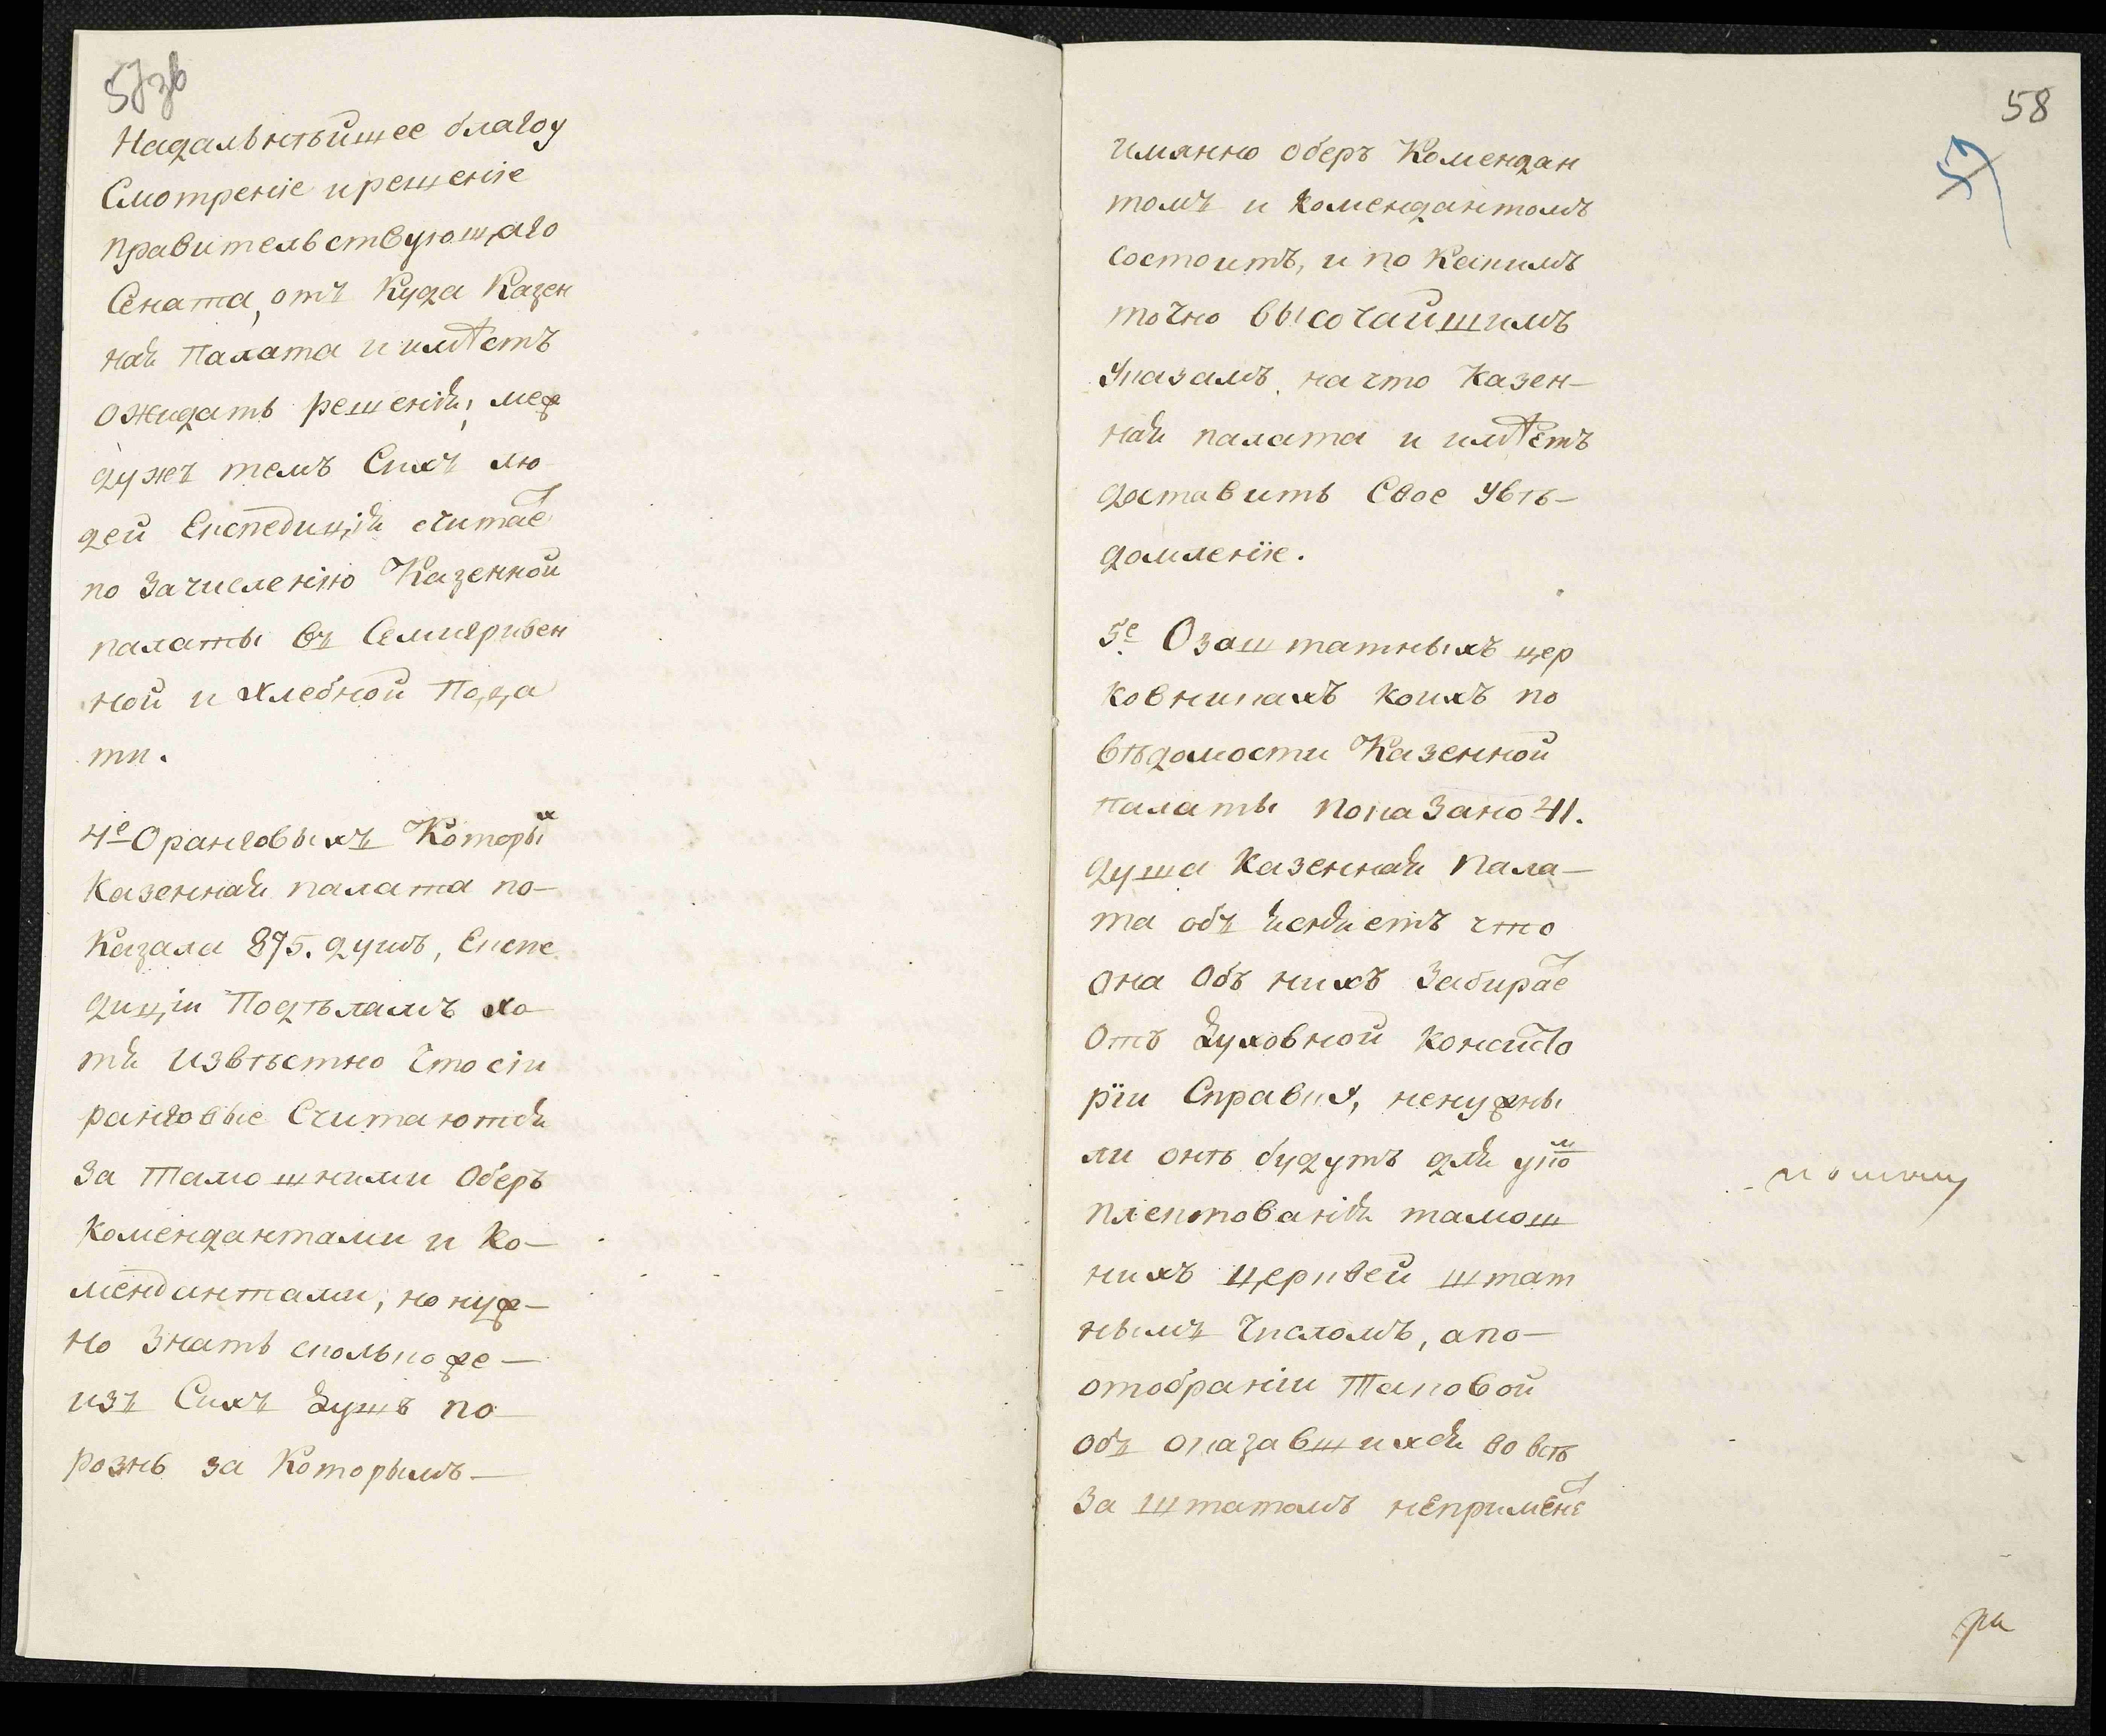 57зв
Надальнѣйшее благоу
Смотреніе и решеніе
правительствующаго
Сената, отъ Куда Казен
ная Палата и имѣетъ
Ожидать решенія, меж
дужъ темъ Сихъ лю
дей Експедиція считае
по Зачисленію Казенной
палаты въ Семигривен
ной и хлебной Пода
ти.
4е Оранговыхъ Которых
Казенная палата по-
Казала 875. душъ, Експе
диціи Подѣламъ хо
тя Извѣстно Что сіи
ранговые Считаются
За Тамошними Оберъ
Комендантами и Ко-
мендантами, но нуж-
но Знать сколько же-
изъ Сихъ Душъ по
рознь за Которымъ-
58
57
имянно оберъ Комендан
томъ и Комендантомъ
состоитъ, и по Какимъ
точно высочайшимъ
Указамъ, на что Казен-
ная палата и имѣетъ
доставить Свое Увѣ-
домленіе.
5е Озаштатныхъ цер
ковникахъ коихъ по
вѣдомости Казенной
палаты показано 41.
душа Казенная Пала-
та объ исняетъ что
она Объ нихъ Забирае
Отъ Духовной Консисто
ріи Справки, ненужны
ли онѣ будутъ для уком
плектованія тамош
нихъ церквей штат
нымъ Числомъ, а по-
отобраніи Таковой
объ оказавшихся во всѣ
За Штатомъ непримене
ра